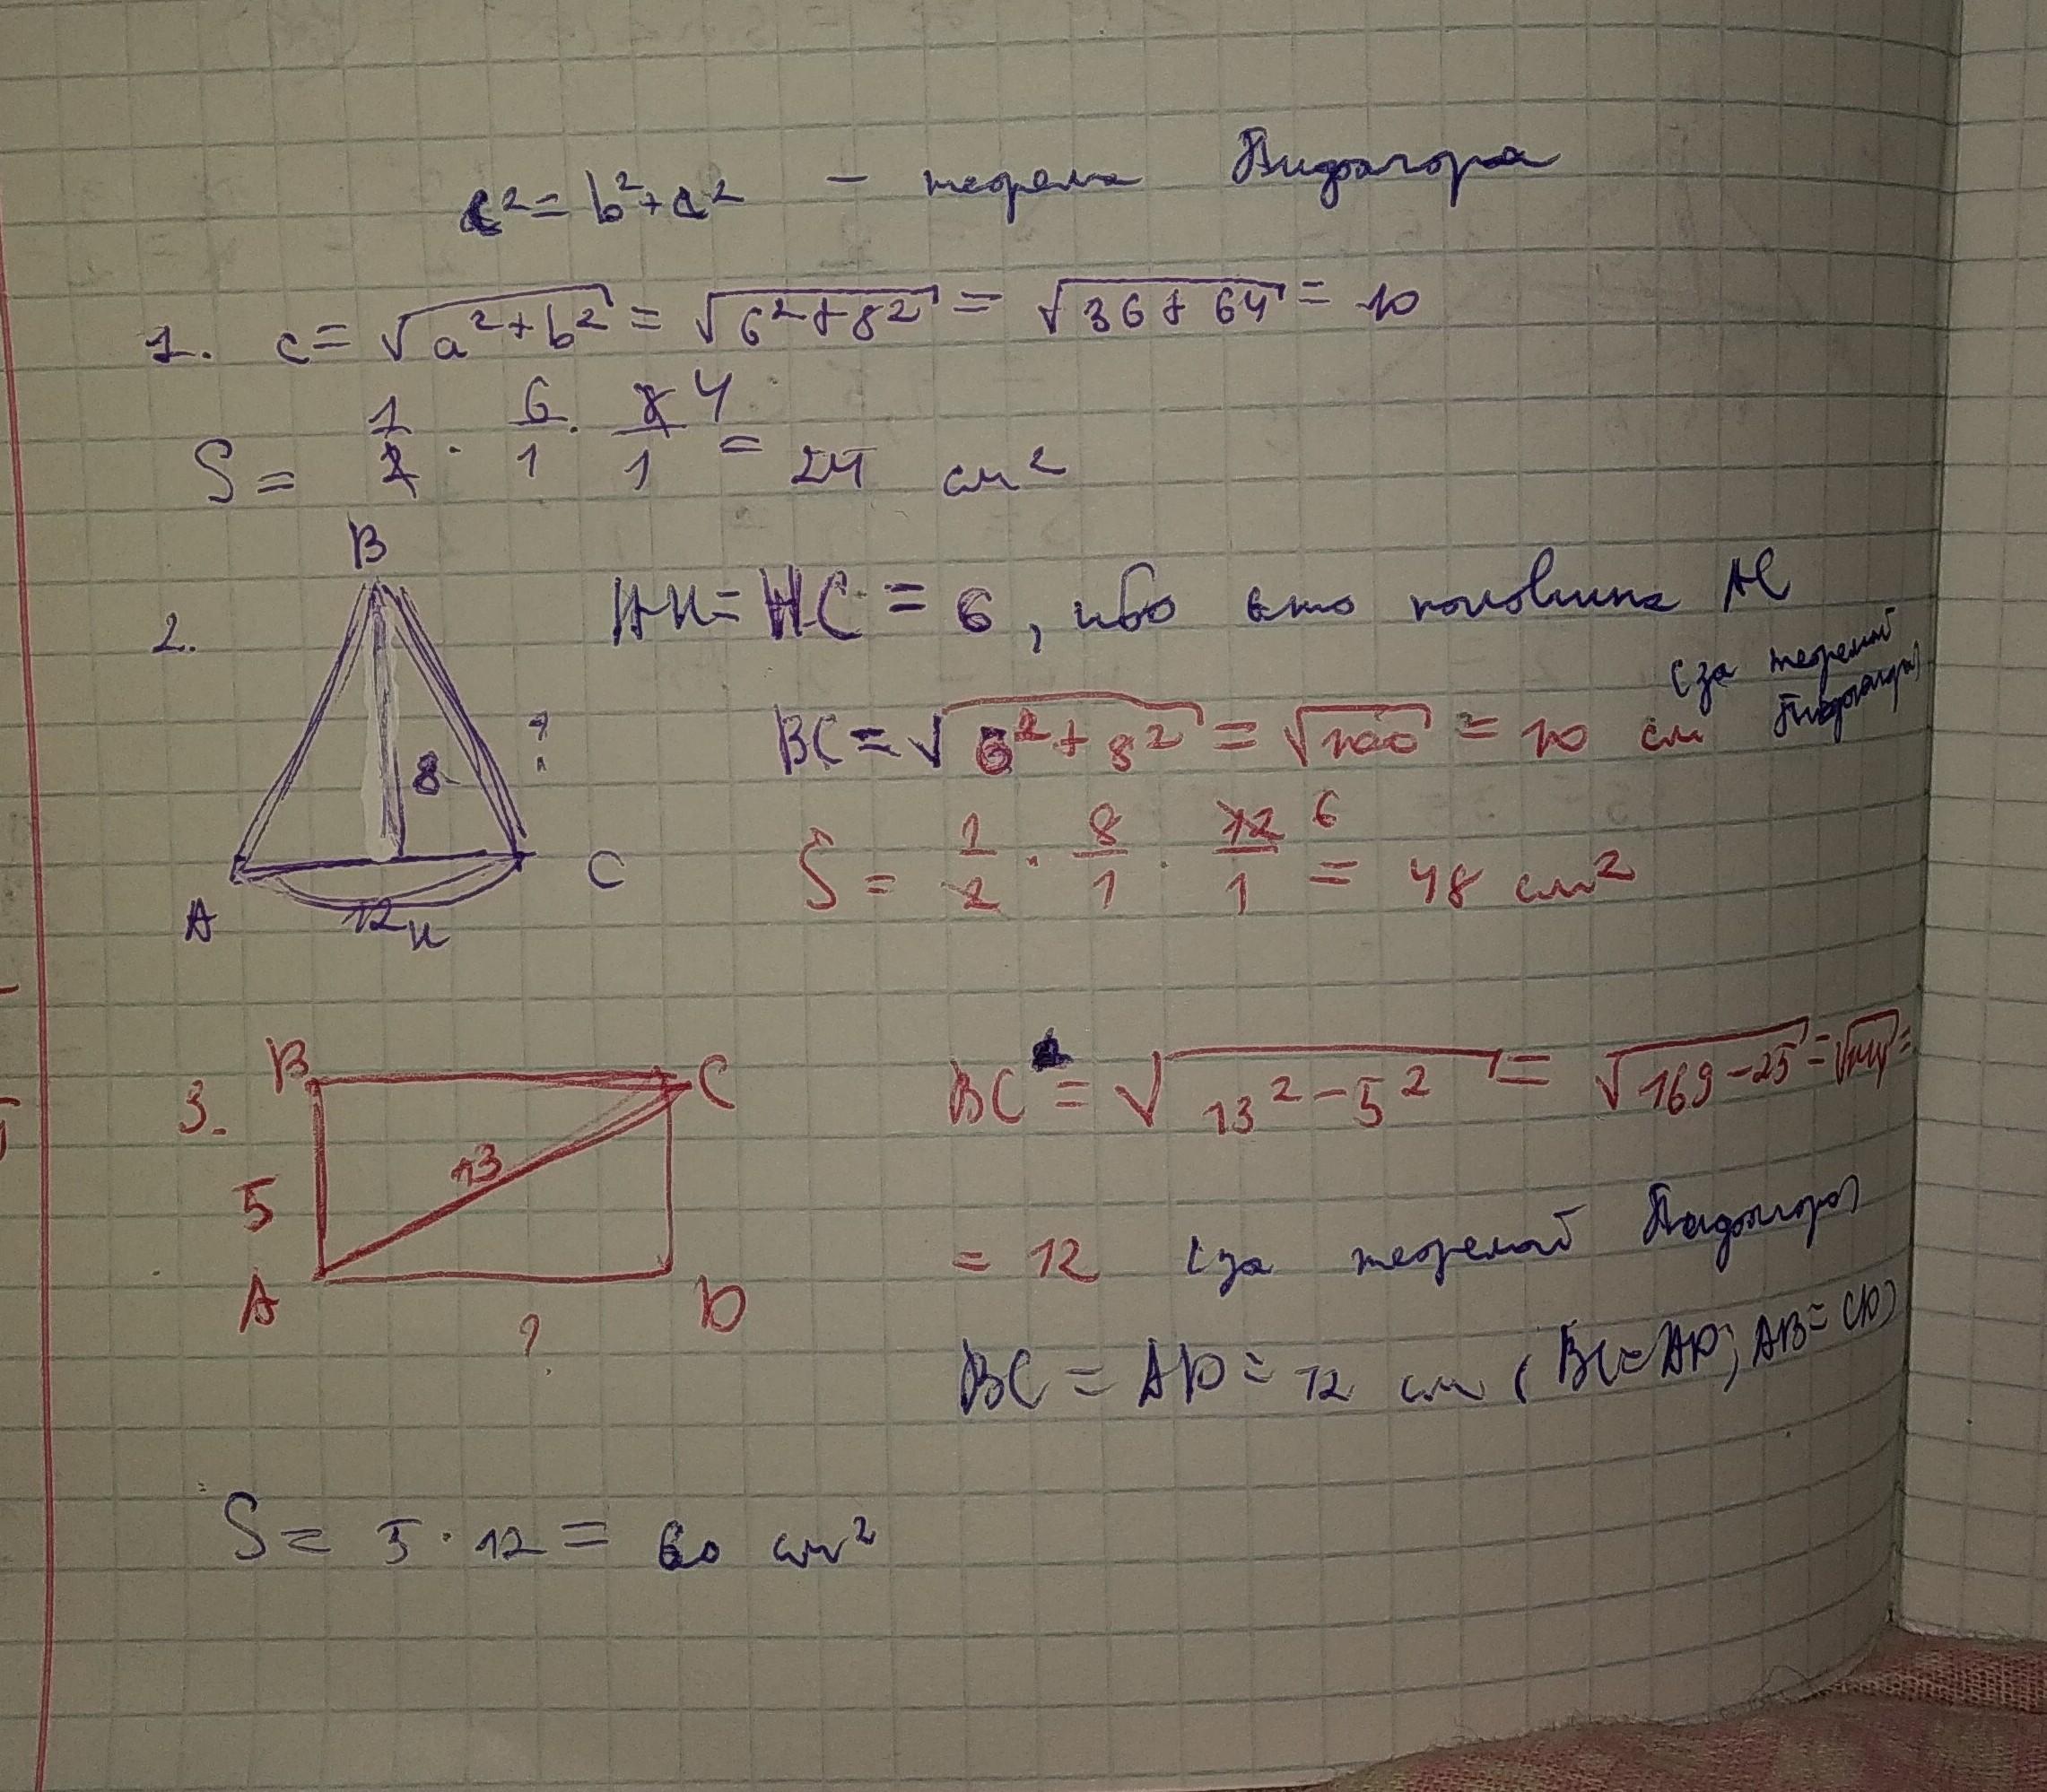 c² = b² + a² - теорема Пифагора
1. c = √a² + b² = √6² + 8² = √36 + 64 = 10
S = 1/2 · 6/1 · 8/1 4 = 24 см²
2.
B
8
?
A
C
12
H
AH = HC = 6, ибо это половина AC
BC = √6² + 8² = √100 = 10 см (за теоремой Пифагора)
S = 1/2 · 8/1 · 12/1 6 = 48 см²
3.
B
C
13
5
A
D
?
BC = √13² - 5² = √169 - 25 = √144 =
= 12 (за теоремой Пифагора)
BC = AD = 12 см (BC = AD; AB = CD)
S = 5 · 12 = 60 см²